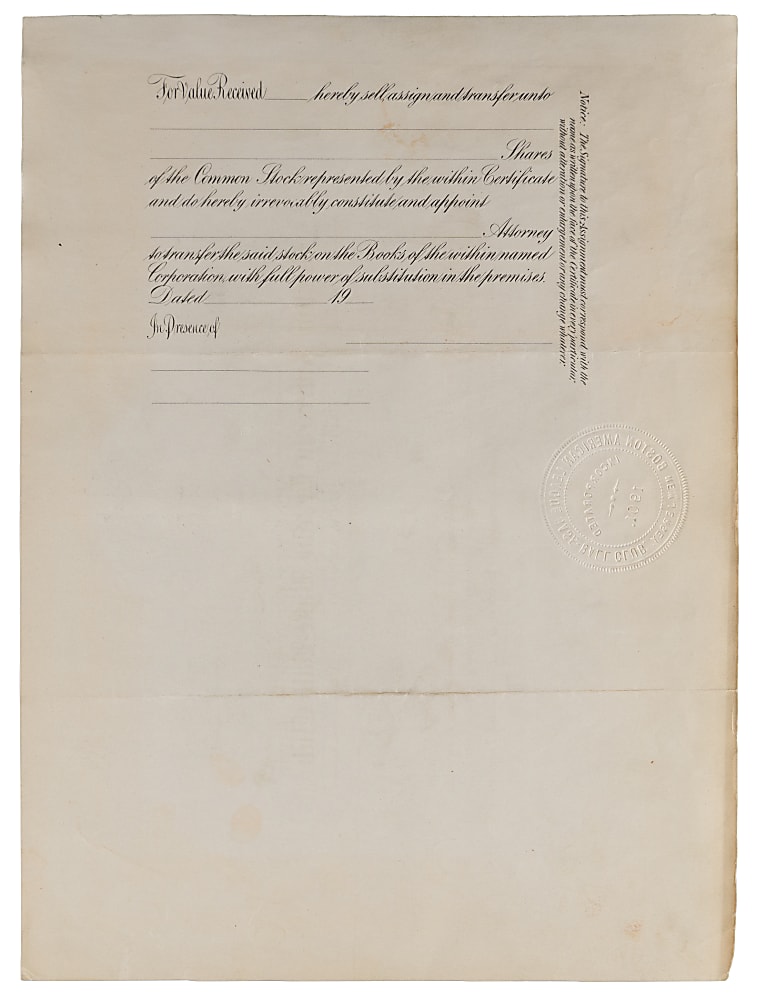 For Value Received hereby sell, assign and transfer unto
Shares
of the Common Stock represented by the within Certificate
and do hereby irrevocably constitute and appoint
Attorney
to transfer the said stock on the Books of the within named
Corporation with full power of substitution in the premises.
Dated 19
In Presence of
Notice: The Signature to this Assignment must correspond with the
name as written upon the face of the Certificate in every particular,
without alteration or enlargement or any change whatever.
BOSTON AMERICAN LEAGUE BASE BALL CLUB
NEW JERSEY
INCORPORATED